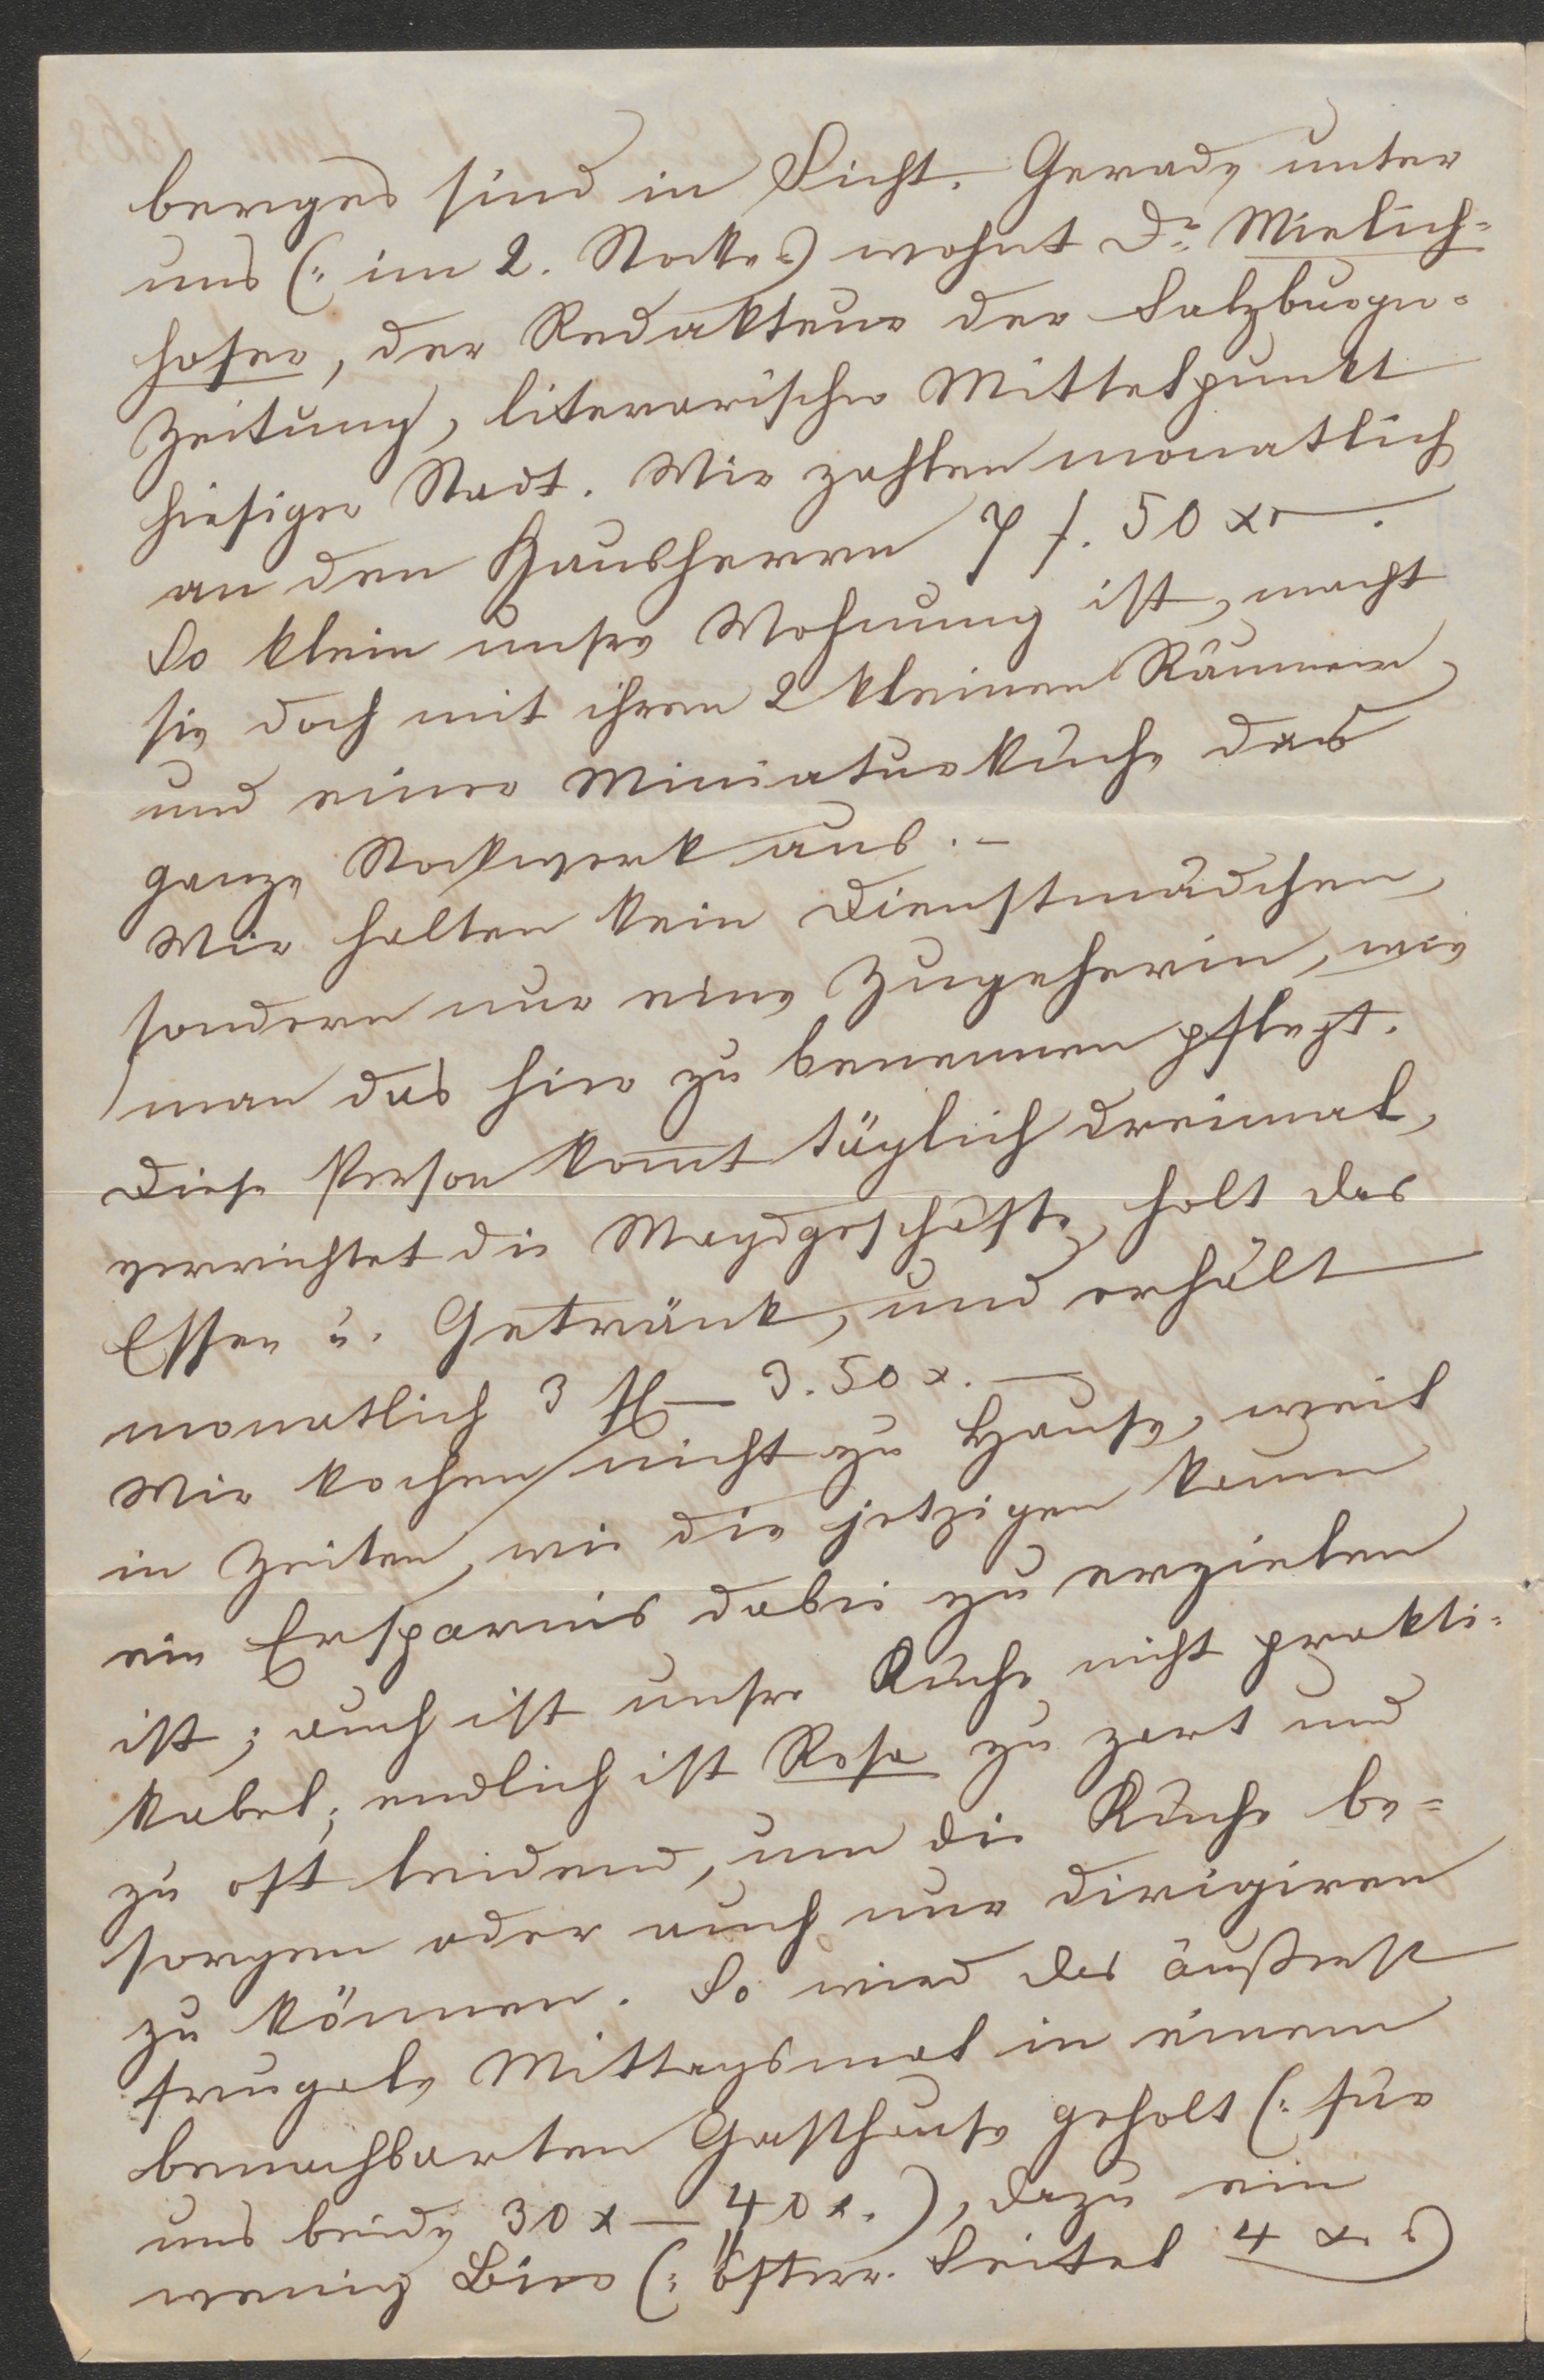 berges sind in Sicht. Gerade unter
uns (: im 2. Stocke :) wohnt Dr. Mielich-
hofer, der Redakteur der Salzburger-
Zeitung, literarischer Mittelpunkt
hiesiger Stadt. Wir zahlen monatlich
an den Hausherrn 7 f. 50 xr.
So klein unsre Wohnung ist, macht
sie doch mit ihren 2 kleinen Räumen
und einer Miniaturküche das
ganze Stockwerk aus. –
Wir halten kein Dienstmädchen,
sondern nur eine Zugeherin, wie
man das hier zu benennen pflegt.
Diese Person kom̅t täglich dreimal,
verrichtet die Magdgeschäfte, holt das
Essen u. Getränk, und erhält
monatlich 3 fl – 3.50 x. –
Wir kochen nicht zu Hause, weil
in Zeiten, wie die jetzigen kaum
ein Ersparnis dabei zu erzielen
ist; auch ist unsre Küche nicht prakti-
kabel; endlich ist Rosa zu zart und
zu oft leidend, um die Küche be-
sorgen oder auch nur dirigiren
zu können. So wird das äußerst
frugale Mittagsmal in einem
benachbarten Gasthause geholt (: für
uns beide 30 x – 40 x. :), dazu ein
wenig Bier (: österr. Seitel 4 x :)